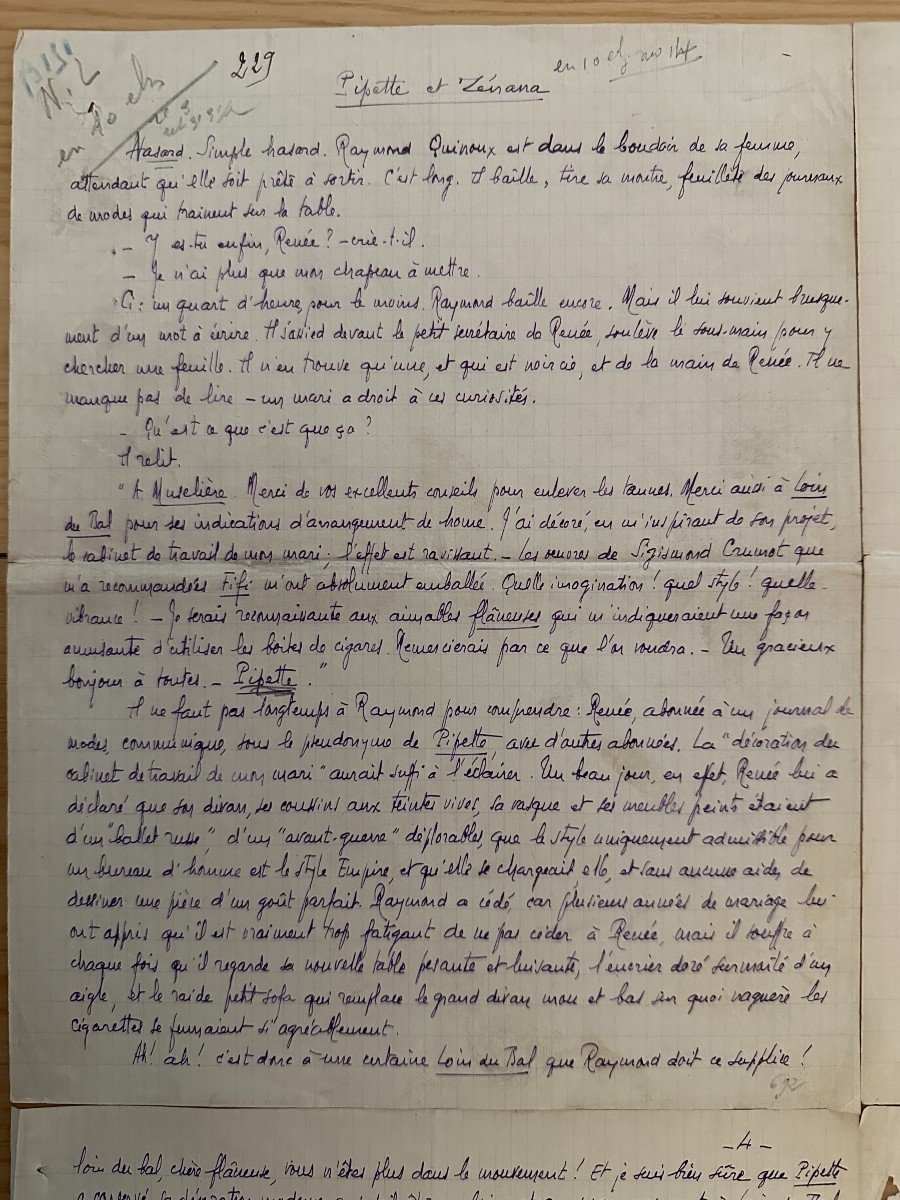 229
en 10 el
Pipette et Zénana
Hasard. Simple hasard. Raymond Quinoux est dans le boudoir de sa femme,
attendant qu'elle soit prête à sortir. C'est long. Il bâille, tire sa montre, feuillète des journaux
de modes qui trainent sur la table.
- Y es-tu enfin, Renée ? - crie-t-il.
- Je n'ai plus que mon chapeau à mettre.
Ci : un quart d'heure, pour le moins. Raymond baille encore. Mais il lui souvient brusque-
ment d'un mot à écrire. Il s'assied devant le petit secrétaire de Renée, soulève le sous-main pour y
chercher une feuille. Il n'en trouve qu'une, et qui est noircie, et de la main de Renée. Il ne
manque pas de lire - un mari a droit à ces curiosités.
- Qu'est ce que c'est que ça ?
Il relit.
"A Muselière. Merci de vos excellents conseils pour enlever les tannes. Merci aussi à Loin
du Bal pour ses indications d'arrangement de home. J'ai décoré, en m'inspirant de son projet,
le cabinet de travail de mon mari ; l'effet est ravissant. - Les oeuvres de Sigismond Crumot que
m'a recommandées Fifi m'ont absolument emballée. Quelle imagination ! quel style ! quelle
vibrance ! - Je serais reconnaissante aux aimables flâneuses qui m'indiqueraient une façon
amusante d'utiliser les boites de cigares. Remercierais par ce que l'on voudra. - Un gracieux
bonjour à toutes. - Pipette."
Il ne faut pas longtemps à Raymond pour comprendre : Renée, abonnée à un journal de
modes, communique, sous le pseudonyme de Pipette, avec d'autres abonnées. La "décoration du
cabinet de travail de mon mari" aurait suffi à l'éclairer. Un beau jour, en effet, Renée lui a
déclaré que son divan, ses coussins aux teintes vives, sa vasque et ses meubles peints étaient
d'un "ballet russe", d'un "avant-guerre" déplorables, que le style uniquement admissible pour
un bureau d'homme est le style Empire, et qu'elle se chargeait, elle, et sans aucune aide, de
dessiner une pièce d'un goût parfait. Raymond a cédé, car plusieurs années de mariage lui
ont appris qu'il est vraiment trop fatigant de ne pas céder à Renée, mais il souffre à
chaque fois qu'il regarde sa nouvelle table pesante et luisante, l'encrier doré surmonté d'un
aigle, et le raide petit sofa qui remplace le grand divan mou et bas sur quoi naguère les
cigarettes se fumaient si agréablement.
Ah ! ah ! c'est donc à une certaine Loin du Bal que Raymond doit ce supplice !
692
- 4 -
loin du bal, chère flâneuse, vous n'êtes plus dans le mouvement ! Et je suis bien sûre que Pipette